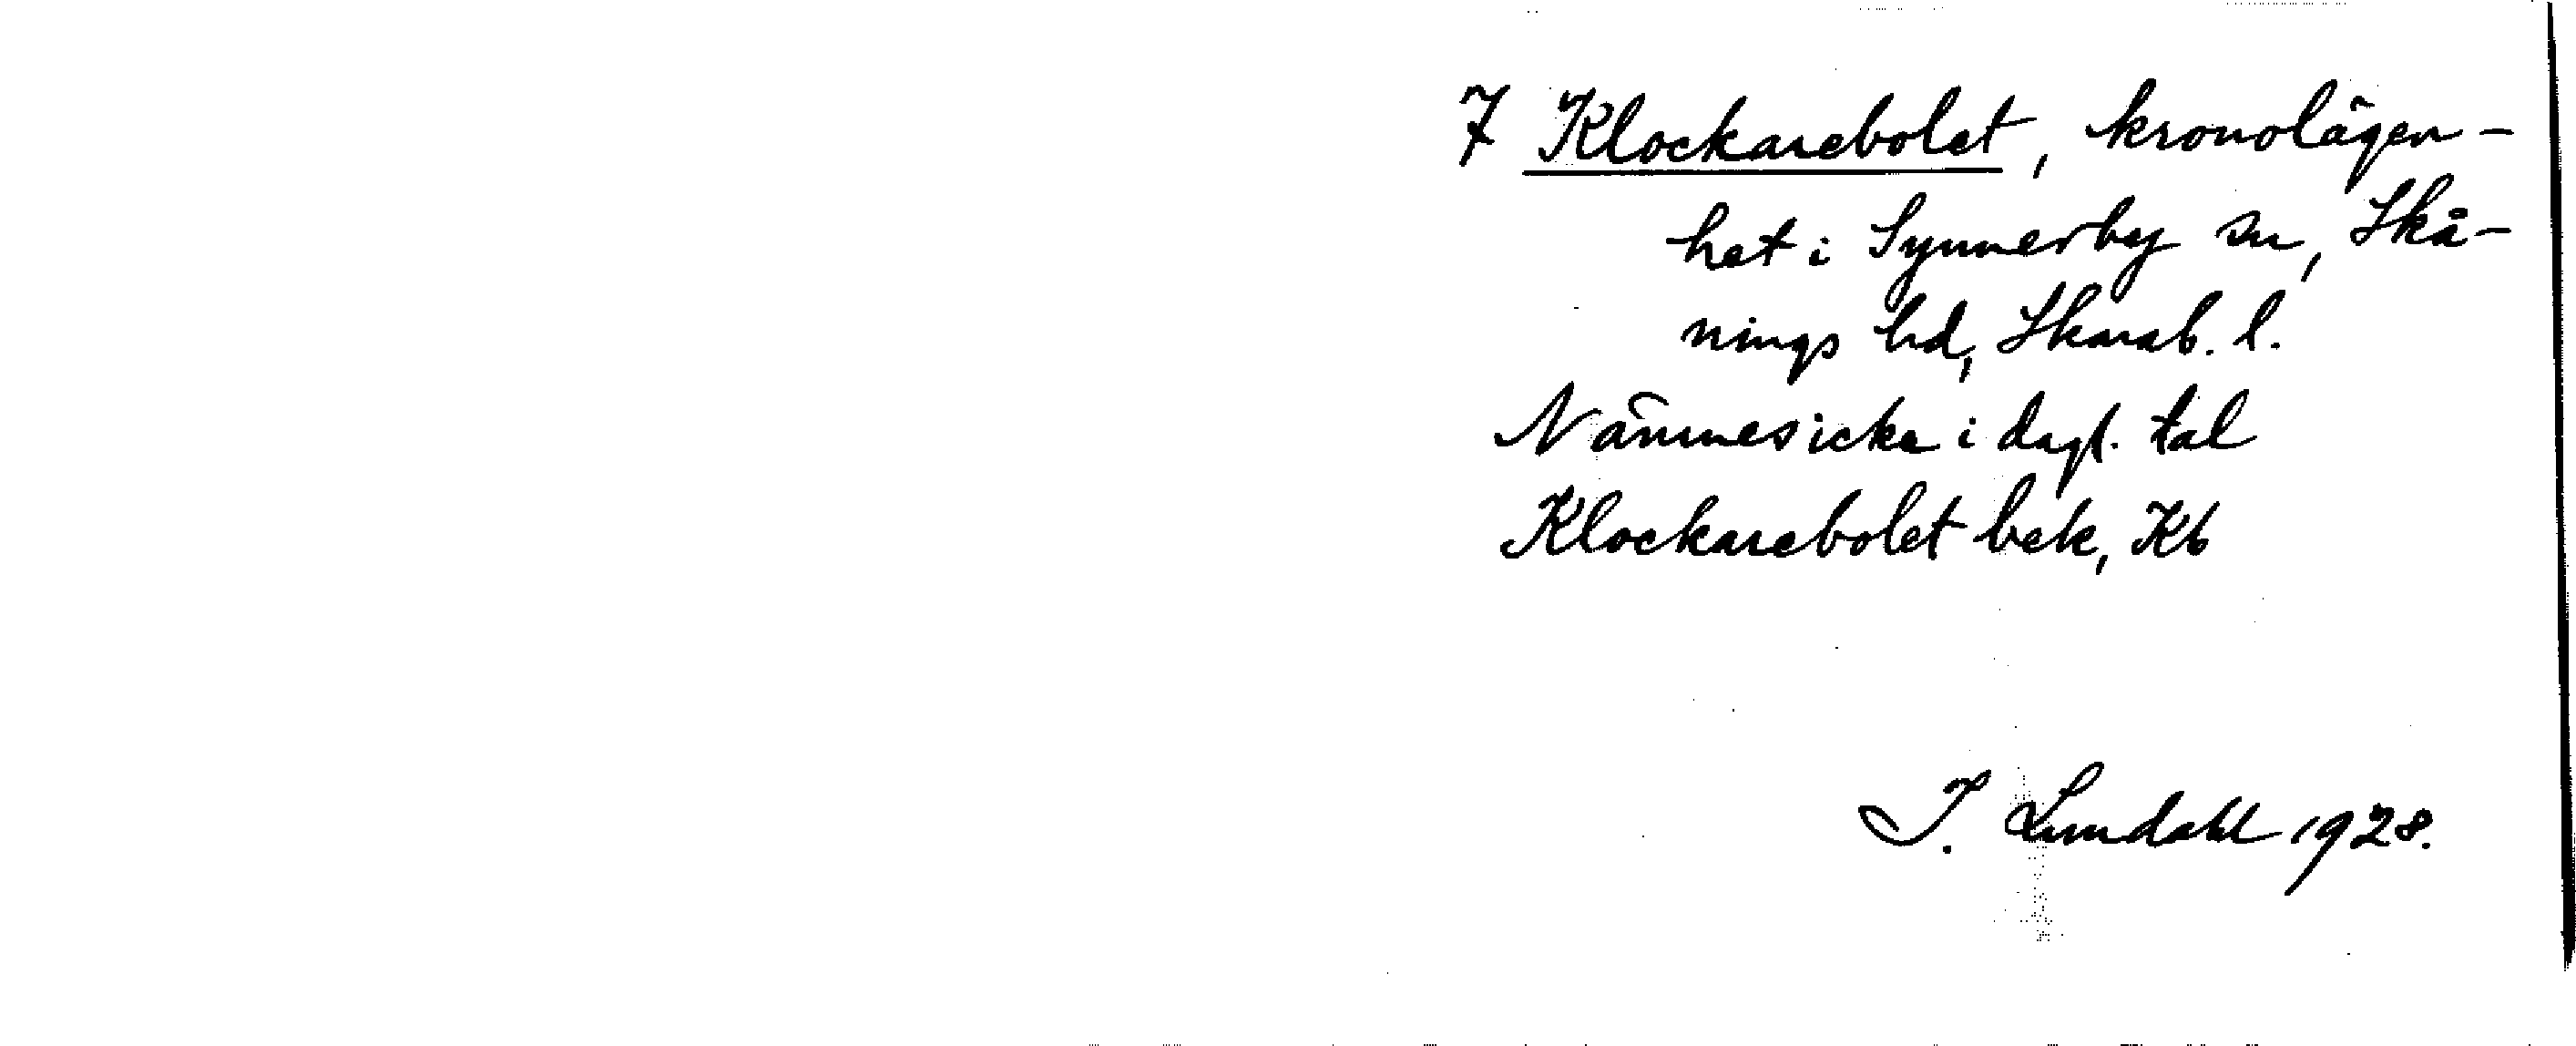 7 Klockarebolet, kronolägen-
het i Synnerby sn, Skå-
nings hd, Skarab. l.
Nämnes icke i dagl. tal
Klockarebolet bek, Kb
I. Lundahl 1928.